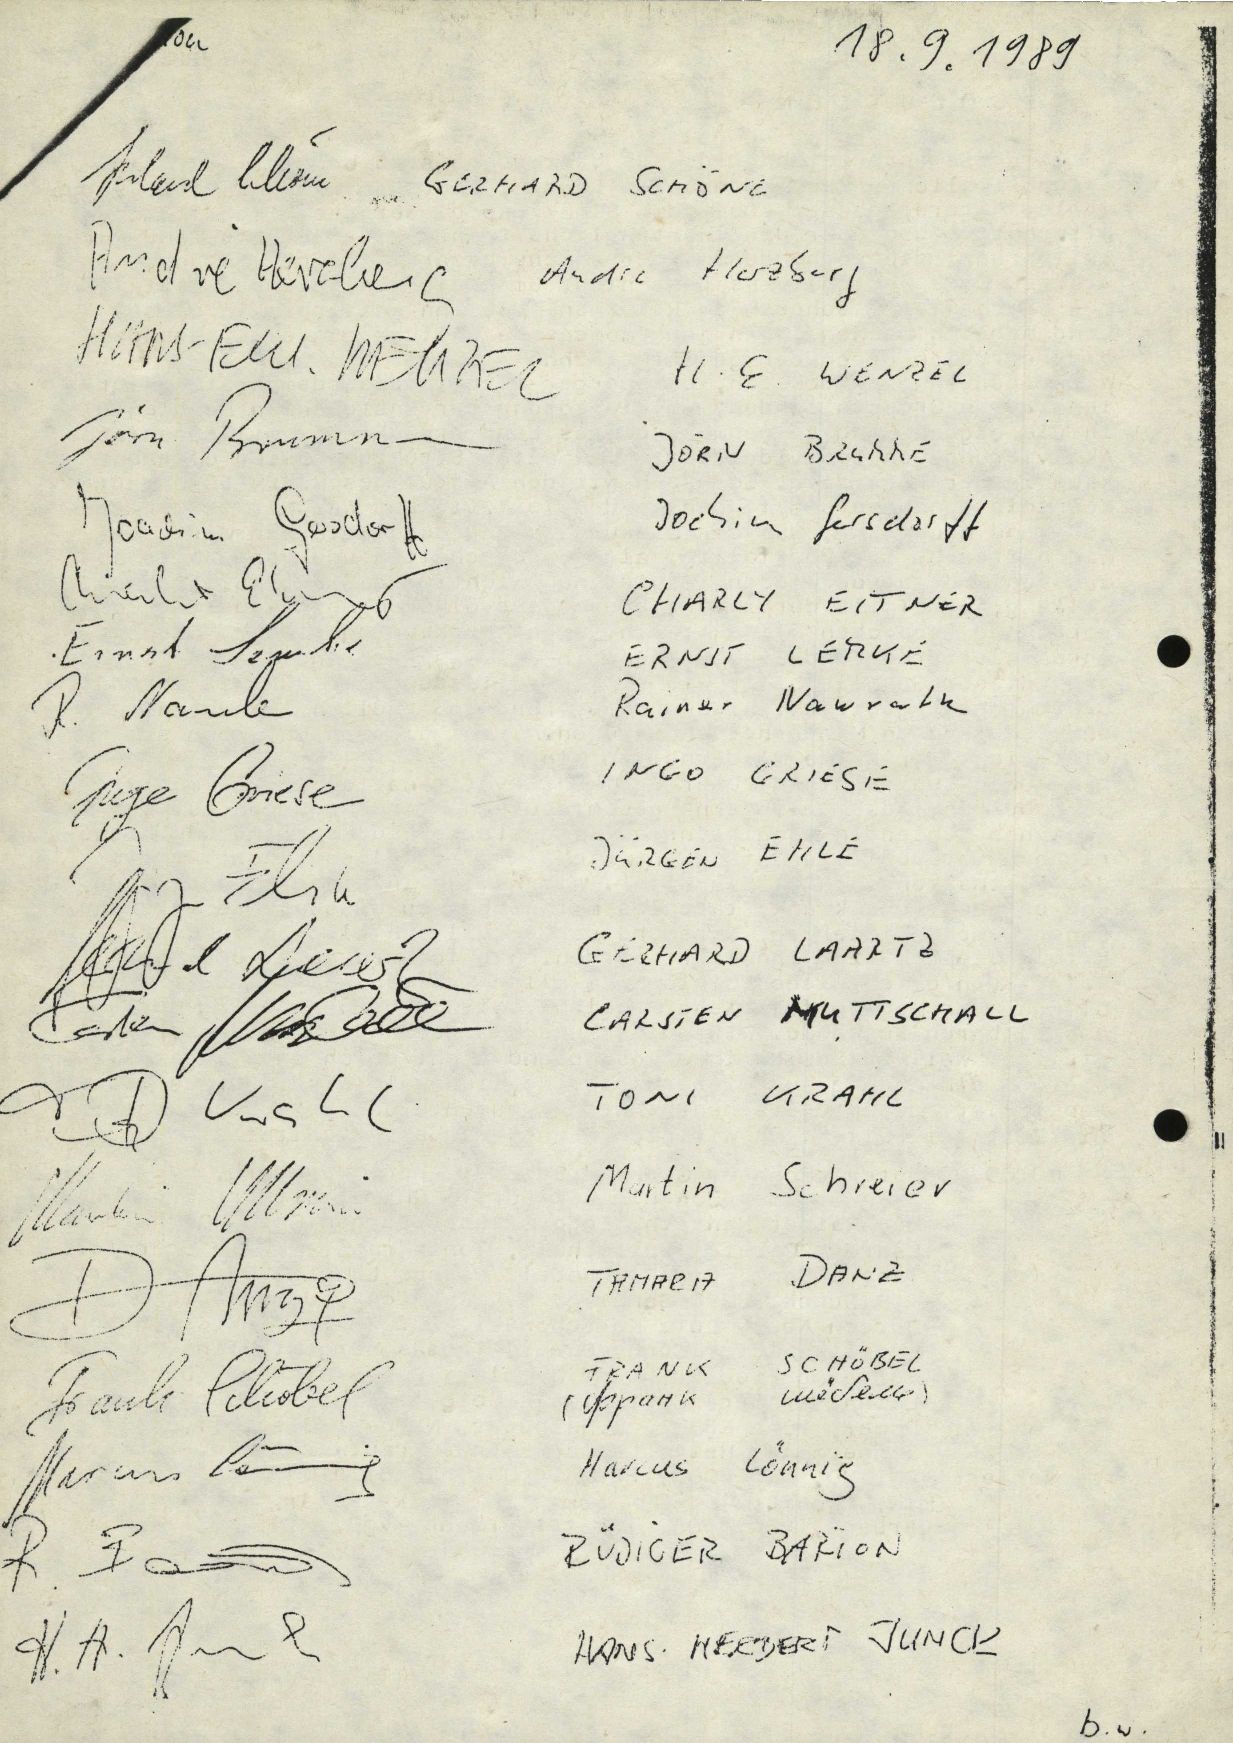 18.9.1989
GERHARD SCHÖNE
André Herzberg Andre Herzberg
HANS-ECK. WENZEL H. E. WENZEL
Jörn Brumme JÖRN BRUMME
Joachim Gersdorff Jochim Gersdorff
CHARLY EITNER
Ernst Lemke ERNST LEMKE
R. Rainer Nawrath
Ingo Griese INGO GRIESE
JÜRGEN EHLE
GERHARD LAARTZ
Carsten CARSTEN MUTTSCHALL
Krahl TONI KRAHL
Martin Martin Schreier
Danz TAMARA DANZ
Frank Schöbel FRANK SCHÖBEL
Marcus Lönnig Marcus Lönnig
R. RÜDIGER BARTON
H. H. HANS-HERBERT JUNCK
b.w.